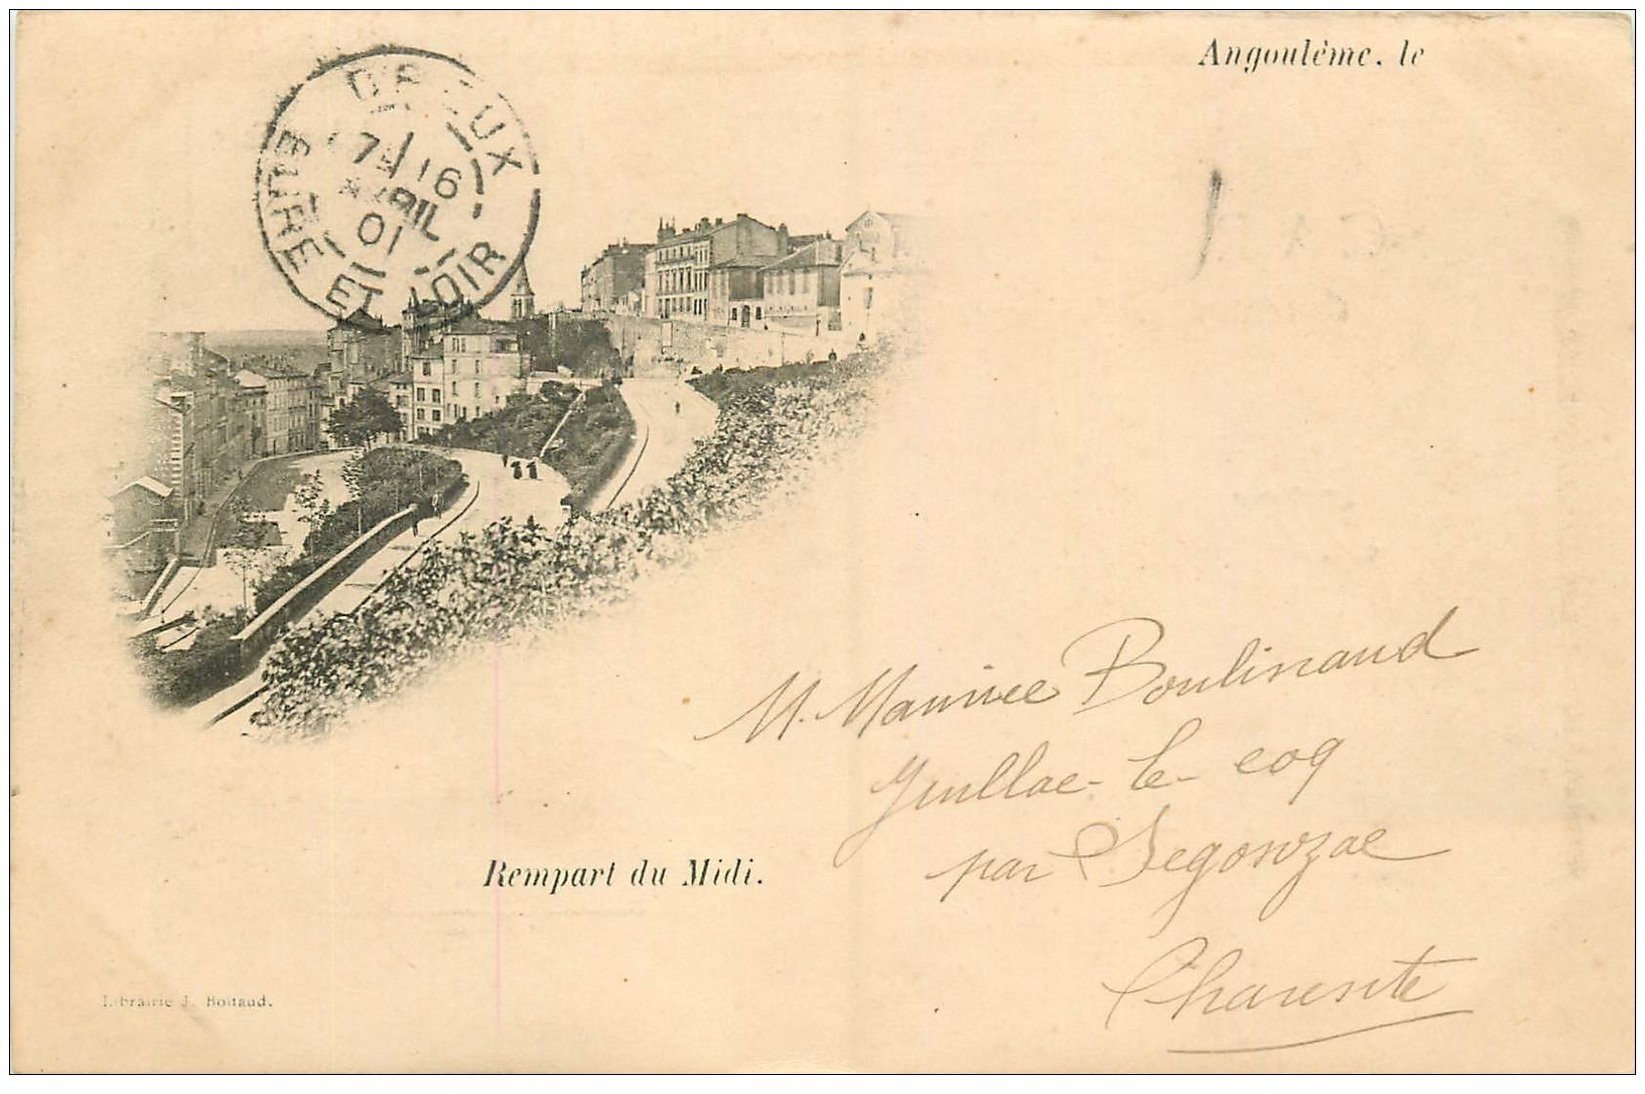 Angoulême, le
DREUX
7E 16
AVRIL
01
EURE ET LOIR
M. Maurice Boulinaud
Guillac-le-coq
par Segonzac
Charente
Rempart du Midi.
Librairie J. Boitaud.